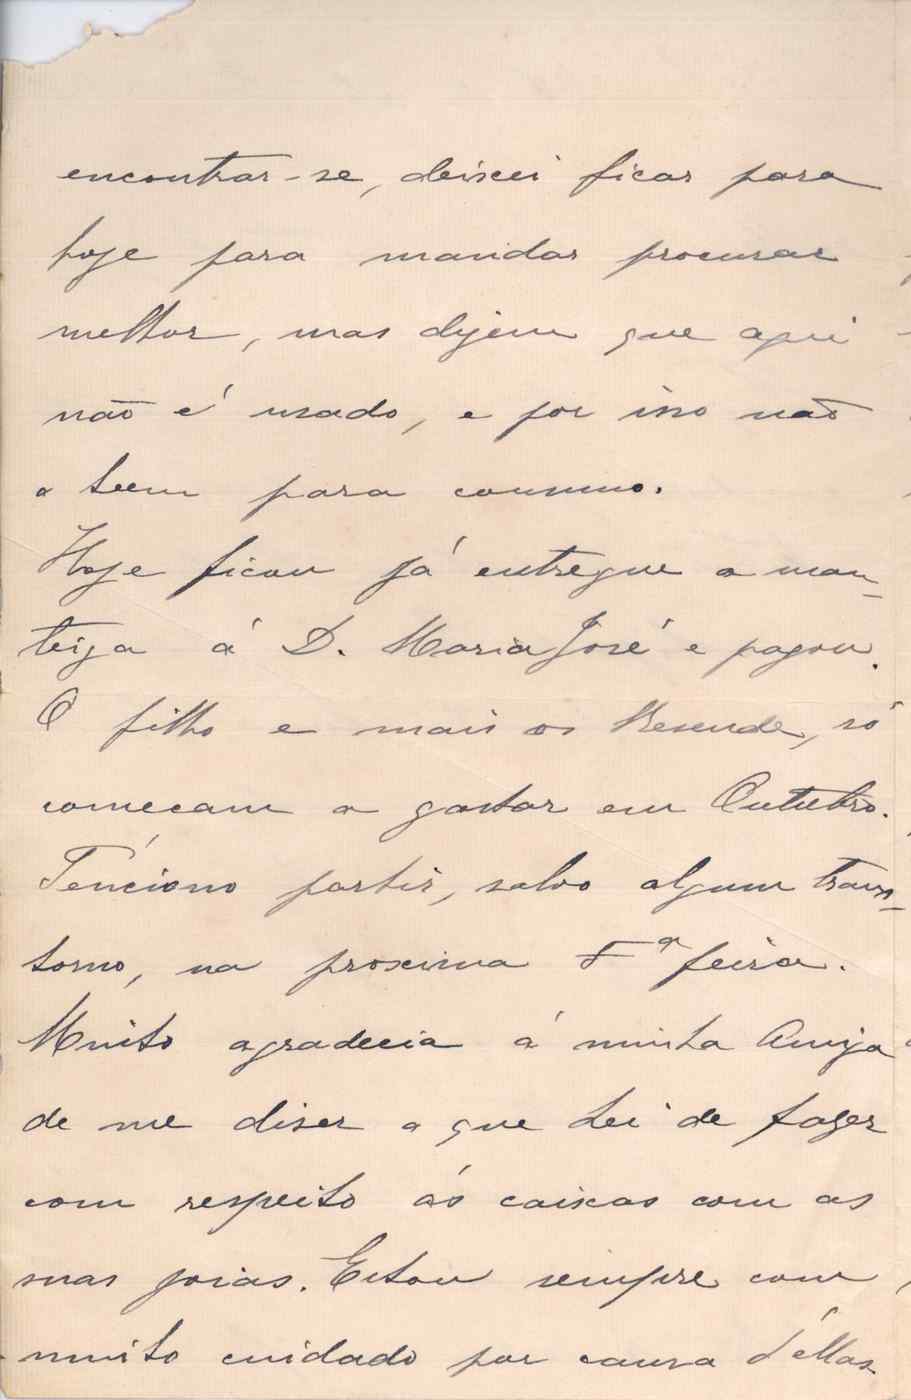 encontrar-se, deixei ficar para
hoje para mandar procurar
melhor, mas dizem que aqui
não é usado, e por isso não
o teem para consumo.
Hoje ficou já entregue a man-
teiga á D. Maria José e pagou.
O filho e mais os Resende, só
comecam a gastar em Outubro.
Tenciono partir, salvo algum trans-
torno, na proxima 5ª feira.
Muito agradecia á minha Amiga
de me diser o que hei de fazer
com respeito ás caixas com as
suas joias. Estou sempre com
muito cuidado por causa d'ellas